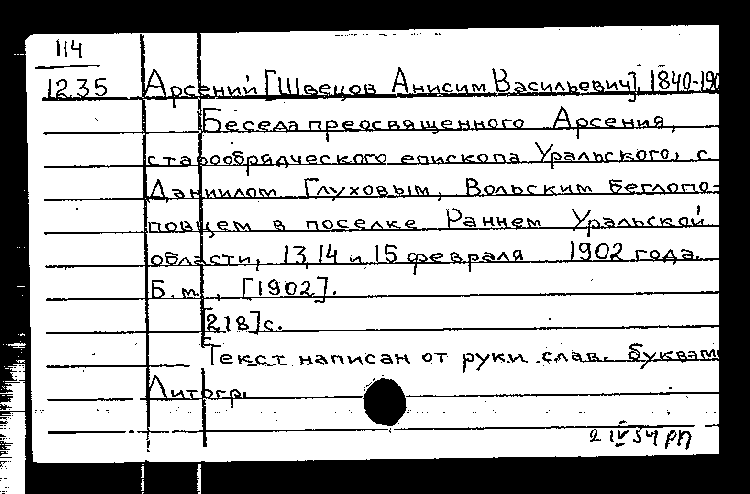 114
1235
Арсений [Швецов Анисим Васильевич], 1840-190
Беседа преосвященного Арсения,
старообрядческого епископа Уральского, с
Даниилом Глуховым, Вольским беглопо-
повцем в поселке Раннем Уральской
области, 13, 14 и 15 февраля 1902 года.
Б.м., [1902].
[218]с.
Текст написан от руки слав. буквам
Литогр.
2 IV 54 рп